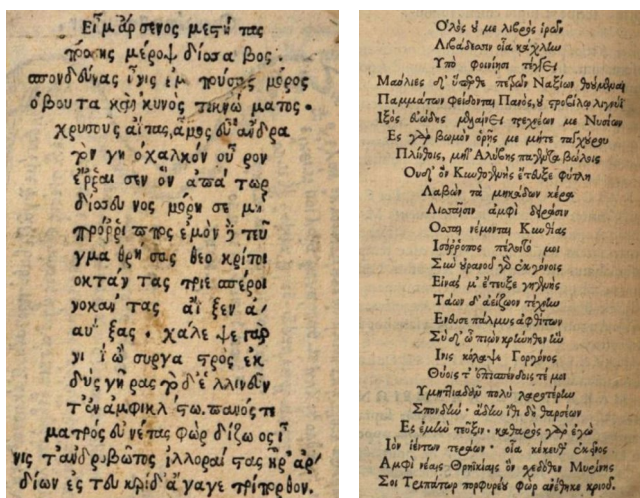 Εἰμ ἄρσενος με στή τας
πόσις μέροψ δίσαβος.
σποδεύνας ἶνις ἐμ πούσας μόρος
ὃ βούτα καὶ κυνὸς τεκνώματος.
χρυσοῦς αἴτας, ἆμος ἕψανδρα
τὸν γυιόχαλκον οὖρον
ἔρραισεν ὃν ἀπάτωρ
δίσευνος μόρησε μα
τρόρριπτος ἐμὸν δὲ τεῦ
γμα θρήσας θεο κρίτοι
ο κτάντας τριεσπέροι
ο καύτας αἴξεν ἀ
αυξας. χάλεψε γὰρ
νιν ἰῷ σύργαστρος ἐκ
δὺς γῆρας τὸν δ' ἐλλινεῦν
τ' ἐν ἀμφικλύστῳ. πανός τε
ματρὸς εὐνέτας φὼρ δίζωος ἶ
νίς τ' ἀνδροβρῶτος ἰλλοραιστας ἦρ' ἀρ
δίων ἐς τευκρίδ' ἄγαγε τρίπορθον.
Ολὸς οὔ με λιβρὸς ἱρῶν
Λιβάδεσσιν οἷα κάχλην
Υπὸ φοινίῃσι τέγγει
Μαύλιες δ' ὕπερθε πέτρων Ναξίων θουμέναι
Παμμάτων φείδονται Πανός, οὐ στροβίλῳ λιγνύϊ
Ιξὸς εὐώδης μελαίνει τρεχνέων με Νυσίων
Ες γὰρ βωμὸν ὁρῇς με μήτε ταγχούρου
Πλίνθοις, μήτ' Αλύβης παγέντα βώλοις
Ουδ' ὃν Κυνθογενὴς ἔτευξε φύτλη
Λαβὼν τὰ μηκάδων κέρα
Λισσαῖσιν ἀμφὶ δειράσιν
Οσσαι νέμονται Κυνθίας
Ισόρροπος πέλοιτό μοι
Σὺν οὐρανοῦ γὸ ἐκγόνοις
Εἰνάς μ' ἔτευξε γηγενὴς
Τάων δ' ἀείζωον τέχνην
Ενευσε πάλμυς ἀφθίτων
Σὺ δ' ὦ πιὼν κρήνηθεν ἣν
Ινις κόλαψε Γοργόνος
Θύοις τ' ἐπισπένδοις τέ μοι
Υμηττιάδων πολὺ λαροτέρην
Σπονδὴν· ἄδην ἴθι δὴ θαρσέων
Ες ἐμὴν τεῦξιν· καθαρὸς γὰρ ἐγὼ
Ιὸν ἱέντων τεράων· οἷα κέκευθ' ἐκεῖνος
Αμφὶ νέαις Θρηϊκίαις ὃν σχεδόθεν Μυρίνης
Σοὶ Τριπάτωρ πορφυρέου φὼρ ἀνέθηκε κριοῦ.